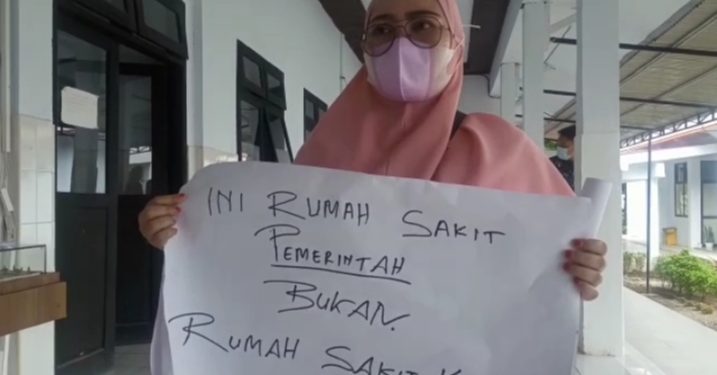 INI RUMAH SAKIT
PEMERINTAH
BUKAN.
RUMAH SAKIT